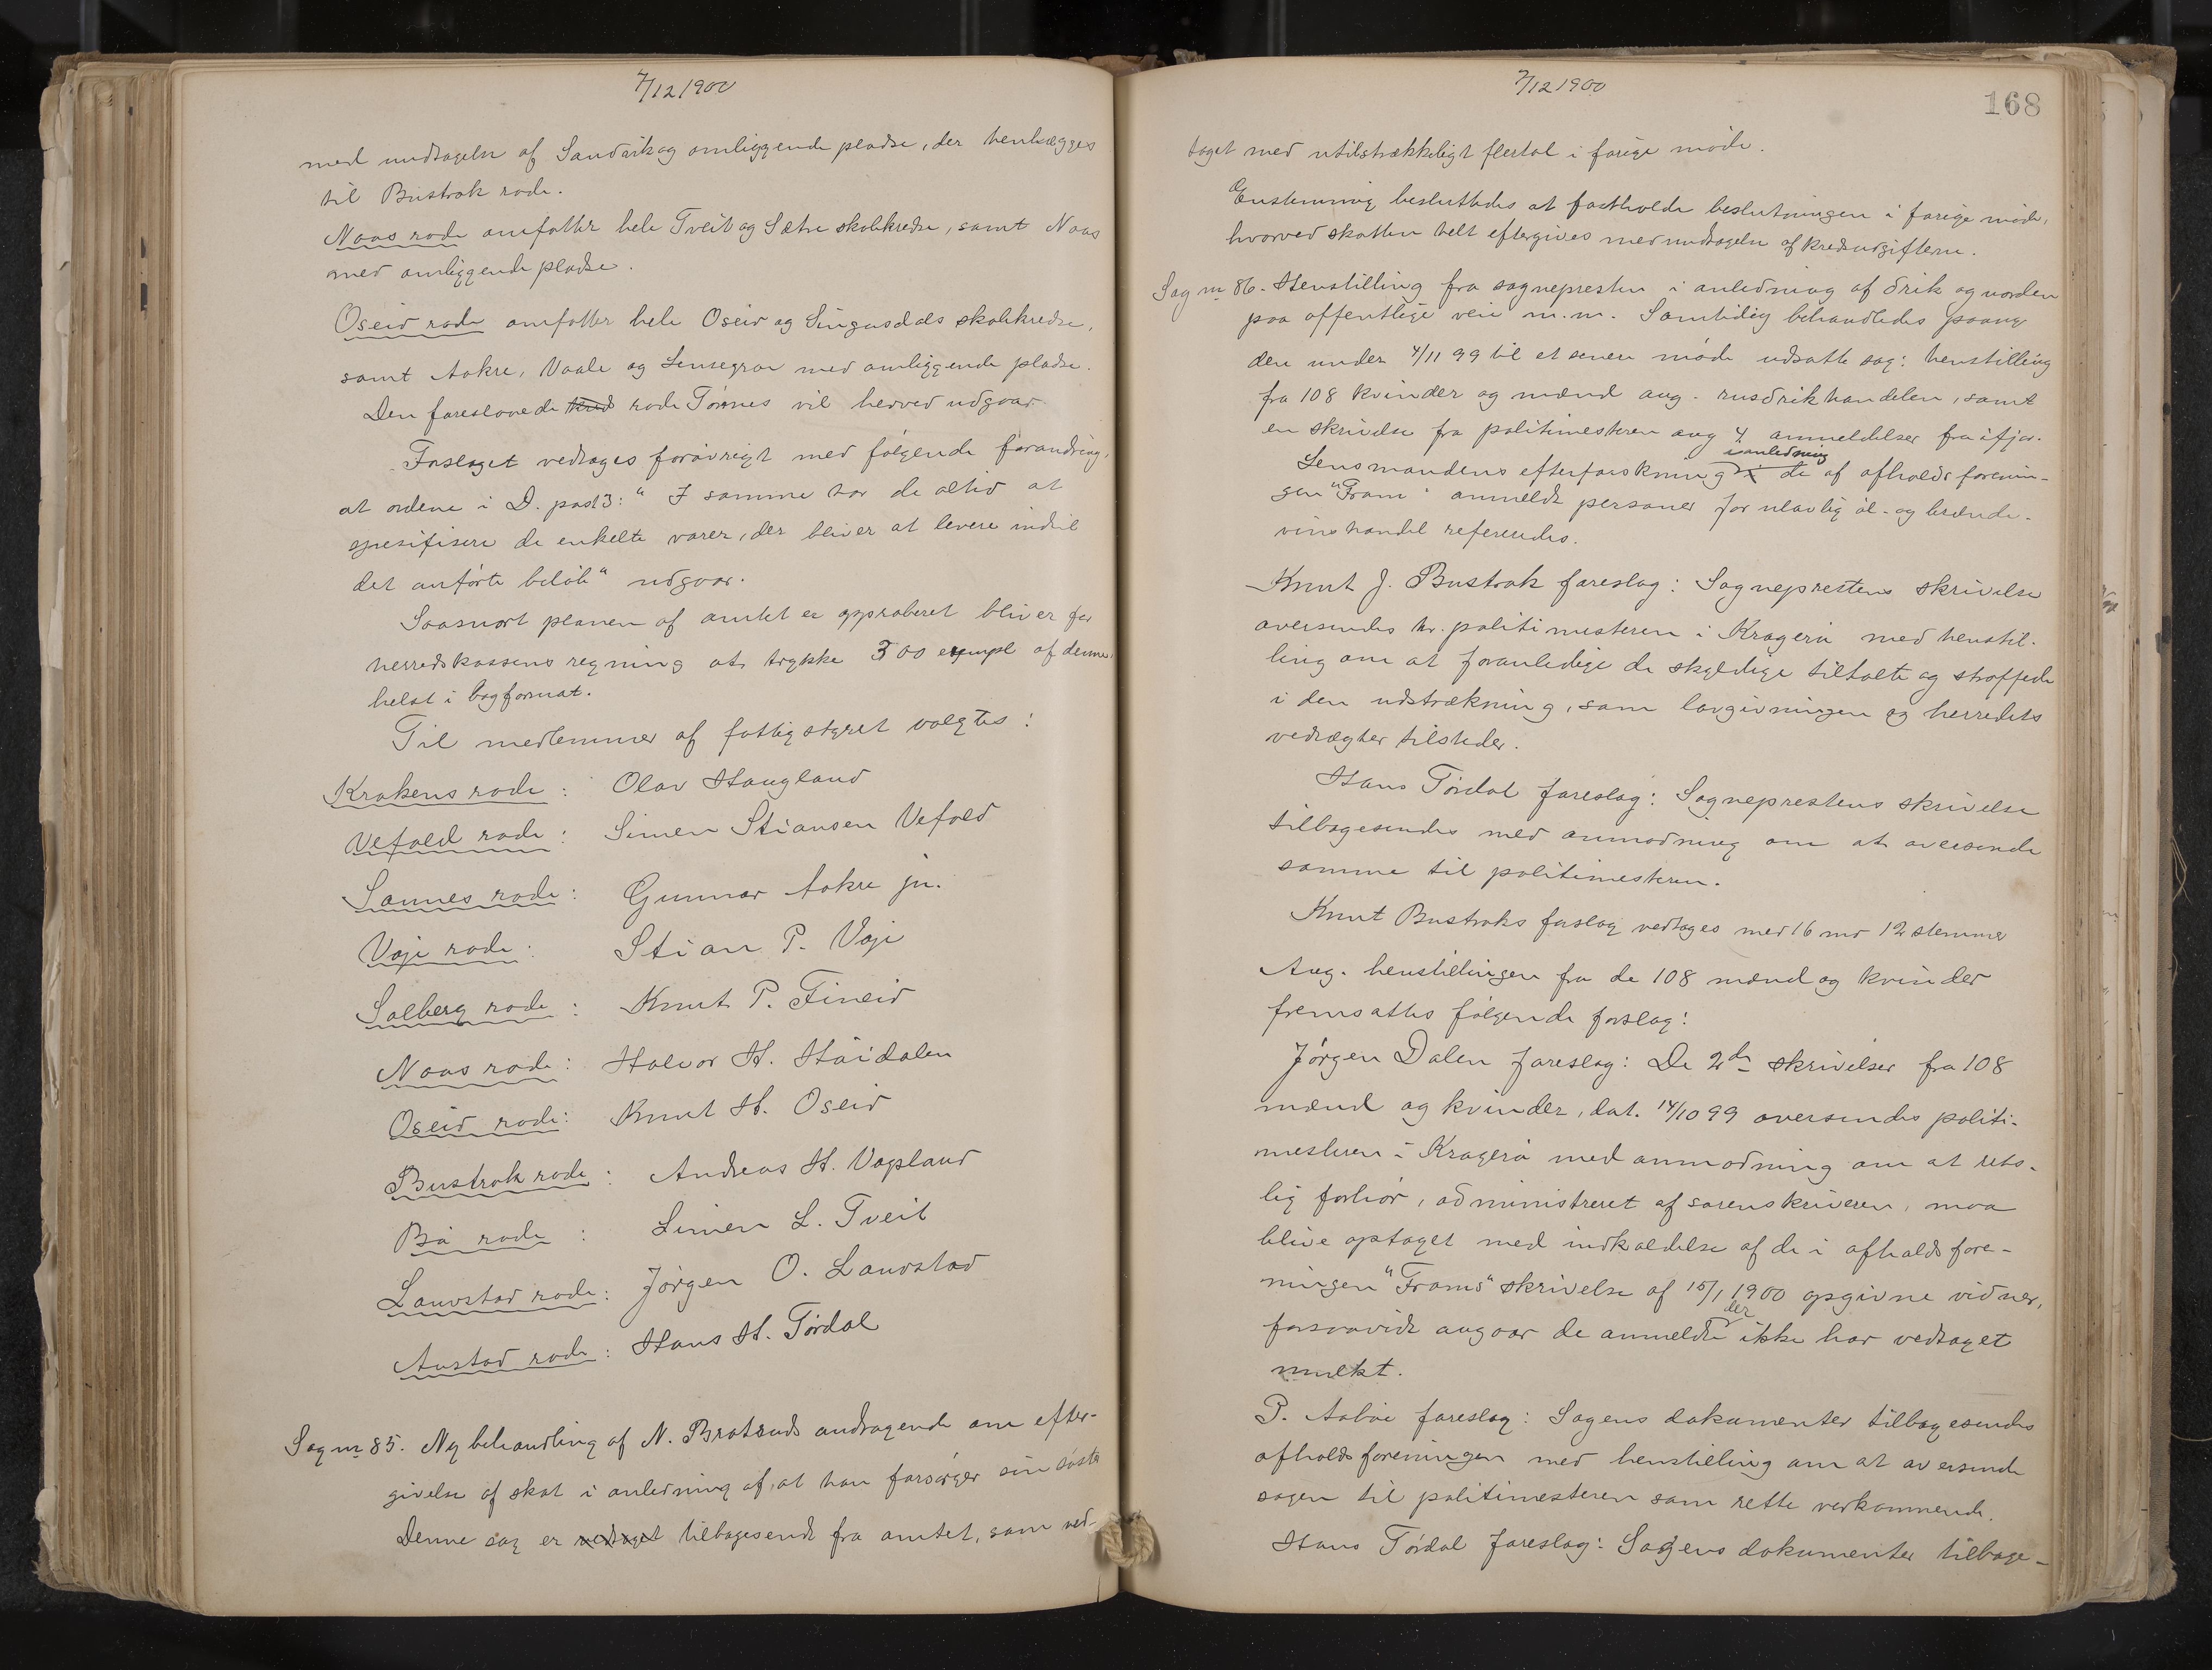 7/12 1900
med undtagelse af Sandvik og omliggende pladse, der henlægges
til Bustrak rode.
Naas rode omfatter hele Tveit og Sætre skolekredse, samt Naas
med omliggende pladse.
Oseid rode omfatter hele Oseid og Lingusdals skolekredse,
samt Aakre, Vaale og Lensegrav med omliggende pladse.
Den foreslaaede kreds rode Tørnes vil herved udgaar
Forslaget vedtages forøvrigt med følgende forandring,
at ordene i D. post 3: "I samme har de altid at
spesifisere de enkelte varer, der bliver at levere indtil
det anførte beløb" udgaar.
Saasnart planen af amtet er approberet bliver for
herredskassens regning at trykke 300 exempl af denne,
helst i bogformat.
Til medlemmer af fattigstyret valgtes:
Krokens rode: Olav Haugland
Vefald rode: Simen Stiansen Vefald
Sannes rode: Gunnar Aakre jn.
Voje rode: Stian P. Voje
Solberg rode: Knut P. Fineid
Naas rode: Halvor H. Høidalen
Oseid rode: Knut H. Oseid
Bustrak rode: Andreas H. Vopland
Bø rode: Simen L. Tveit
Landstad rode: Jørgen O. Landstad
Austad rode: Hans H. Tørdal
Sag nr 85. Ny behandling af N. Bratruds andragende om efter-
givelse af skat i anledning af, at han forsørger sin søster
Denne sag er vedtaget tilbagesendt fra amtet, som ved-
7/12 1900
168
taget med utilstrækkeligt flertal i forrige møde.
Enstemmig besluttedes at fastholde beslutningen i forrige møde,
hvorved skatten helt eftergives med undtagelse af kredsudgifterne.
Sag nr 86. Henstilling fra sognepresten i anledning af drik og uorden
paa offentlige veie m.m. Samtidig behandledes paany
den under 4/11 99 til et senere møde udsatte sag: henstilling
fra 108 kvinder og mænd ang. rusdrikhandelen, samt
en skrivelse fra politimesteren ang 4 anmeldelser fra ifjor.
Lensmandens efterforskning i anledning i de af afholdsforenin-
gen "Fram" anmeldte personer for ulovlig øl- og brænde-
vinshandel refereredes.
Knut J. Bustrak foreslog: Sogneprestens skrivelse
oversendes hr. politimesteren i Kragerø med henstil-
ling om at foranledige de skyldige tiltalte og straffede
i den udstrækning, som lovgivningen og herredets
vedtægter tilsteder.
Hans Tørdal foreslog: Sogneprestens skrivelse
tilbagesendes med anmodning om at oversende
samme til politimesteren.
Knut Bustraks forslag vedtages med 16 mod 12 stemmer
Ang. henstillingen fra de 108 mænd og kvinder
fremsattes følgende forslag:
Jørgen Dalen foreslog: De 2de skrivelser fra 108
mænd og kvinder, dat. 14/10 99 oversendes politi-
mesteren i Kragerø med anmodning om at rets-
lig forhør, administreret af sorenskriveren, maa
blive optaget med indkaldelse af de i afholdsfore-
ningen "Frams" skrivelse af 15/1 1900 opgivne vidner,
forsaavidt angaar de anmeldte der ikke har vedtaget
mulkt.
P. Aabøe foreslog: Sagens dokumenter tilbagesendes
afholdsforeningen med henstilling om at oversende
sagen til politimesteren som rette vedkommende.
Hans Tørdal foreslog: Sagens dokumenter tilbage-